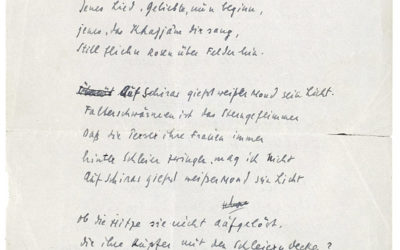 Jenes Lied, Geliebte, nun beginn,
jenes, das Khajjam dir sang,
Still fliehn Rosen über Felder hin.
Auf Schiras giesst weisser Mond sein Licht
Falterschwärmen ist das Sterngeflimmer
Daß die Perser ihre Frauen immer
hinter Schleier zwingen, mag ich nicht
Auf Schiras giesst weisser Mond sein Licht
Ob die Hitze sie nicht aufgelöst,
die ihre Körper mit den Schleiern decken?